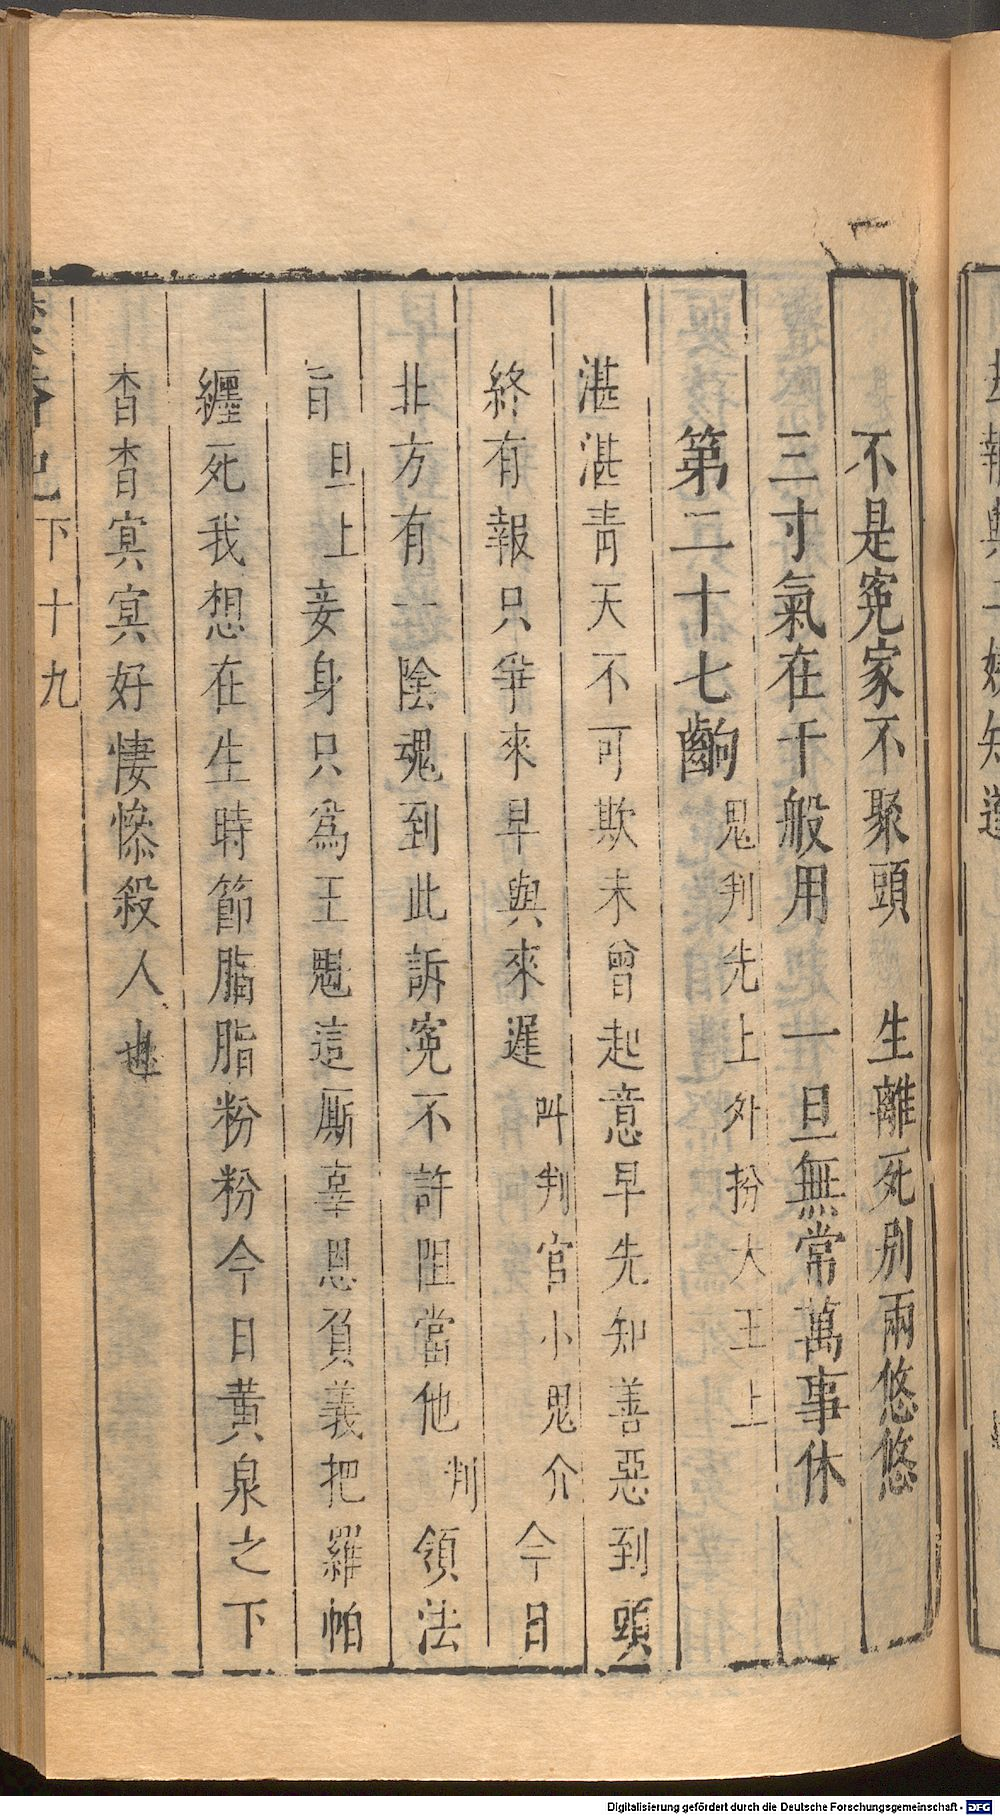 不是寃家不聚頭　生離死別兩悠悠
三寸氣在千般用　一旦無常萬事休
第二十七齣　鬼判先上外扮大王上
湛湛青天不可欺未曾起意早先知善惡到頭
終有報只爭來早與來遲　叫判官小鬼介　今日
北方有一陰魂到此訴寃不許阻當他　判　領法
旨　旦上　妾身只爲王魁這厮辜恩負義把羅帕
纒死我想在生時節腦脂粉粉今日黄泉之下
杳杳冥冥好悽慘殺人也
焚香記
下十九
Digitalisierung gefördert durch die Deutsche Forschungsgemeinschaft - DFG